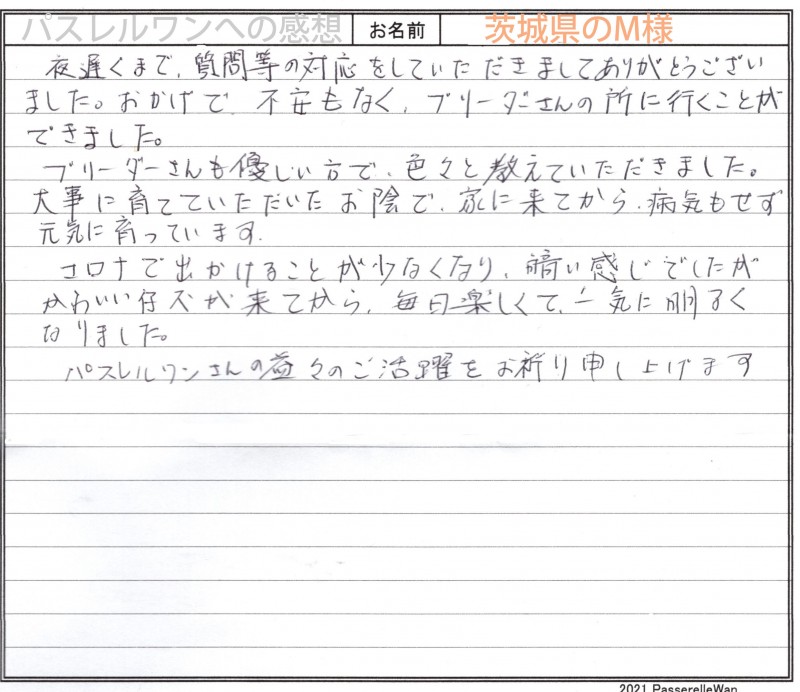 パスレルワンへの感想 お名前 茨城県のM様
夜遅くまで、質問等の対応をしていただきましてありがとうござい
ました。おかげで、不安もなく、ブリーダーさんの所に行くことが
できました。
ブリーダーさんも優しい方で、色々と教えていただきました。
大事に育てていただいたお陰で、家に来てから、病気もせず
元気に育っています。
コロナで出かけることが少なくなり、暗い感じでしたが
かわいい仔犬が来てから、毎日楽しくて、一気に明るく
なりました。
パスレルワンさんの益々のご活躍をお祈り申し上げます
2021 PasserelleWan